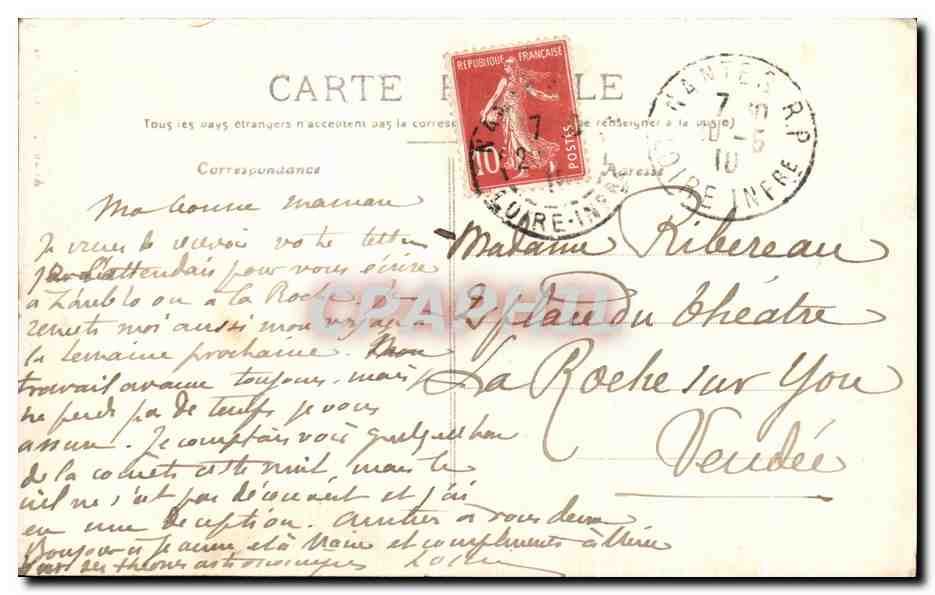 CARTE LE
RÉPUBLIQUE FRANÇAISE
10 POSTES
NANTES R.P
7
10
LOIRE INFRE
Tous les pays étrangers n'acceptent pas la corresp se renseigner à la poste)
Correspondance
Adresse
Ma bonne maman
Je viens de recevoir votre lettre
j'attendais pour vous écrire
ou à la Roche. Je
remets moi aussi mon voyage à
la semaine prochaine. Mon
travail avance toujours, mais je
ne perds pas de temps je vous
assure. Je comptais voir quelque chose
de la comète cette nuit, mais le
ciel ne s'est pas découvert et j'ai
eu une déception. Amitiés à vous deux
Bonjour à Jeanne et à Marie et compliments à
ses théories astronomiques
Madame Ribereau
2 place du théâtre
La Roche sur Yon
Vendée
CPAPHIL